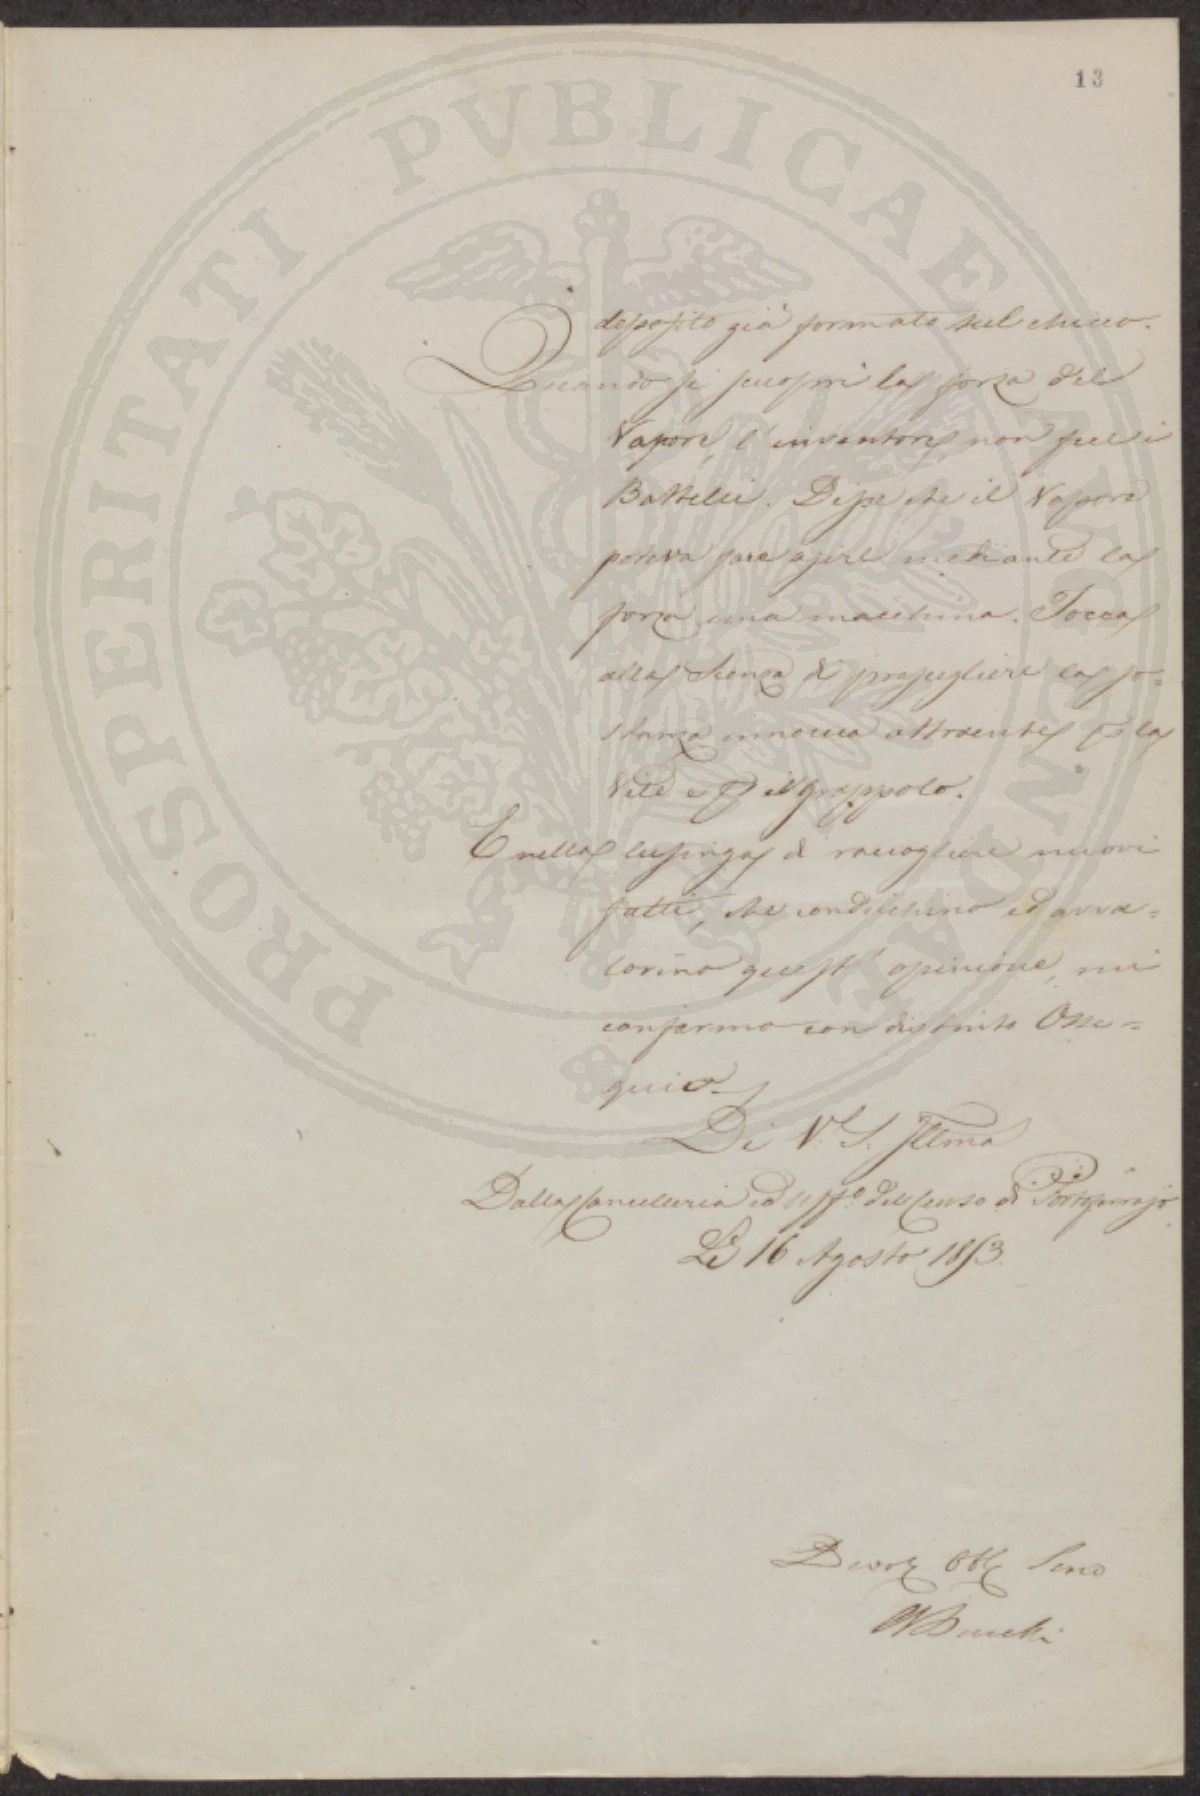 13
PROSPERITATI PVBLICAE AVGENDAE
deposito già formato sul chicco.
Quando si scoprì la forza del
Vapore, l'inventore non fece i
Battelli. Disse che il Vapore
poteva fare agire mediante la
forza una macchina. Tocca
alla Scienza di prescegliere la so=
stanza innocua attraente p la
Vite e p il grappolo.
E nella lusinga di raccogliere nuovi
fatti, che confichino ed avva=
lorino quest' opinione, mi
confermo con distinto Osse=
quio
Di V. S. Illma
Dalla Cancelleria ed Uffo del Censo di
Li 16 Agosto 1853.
Devo Obb Serv